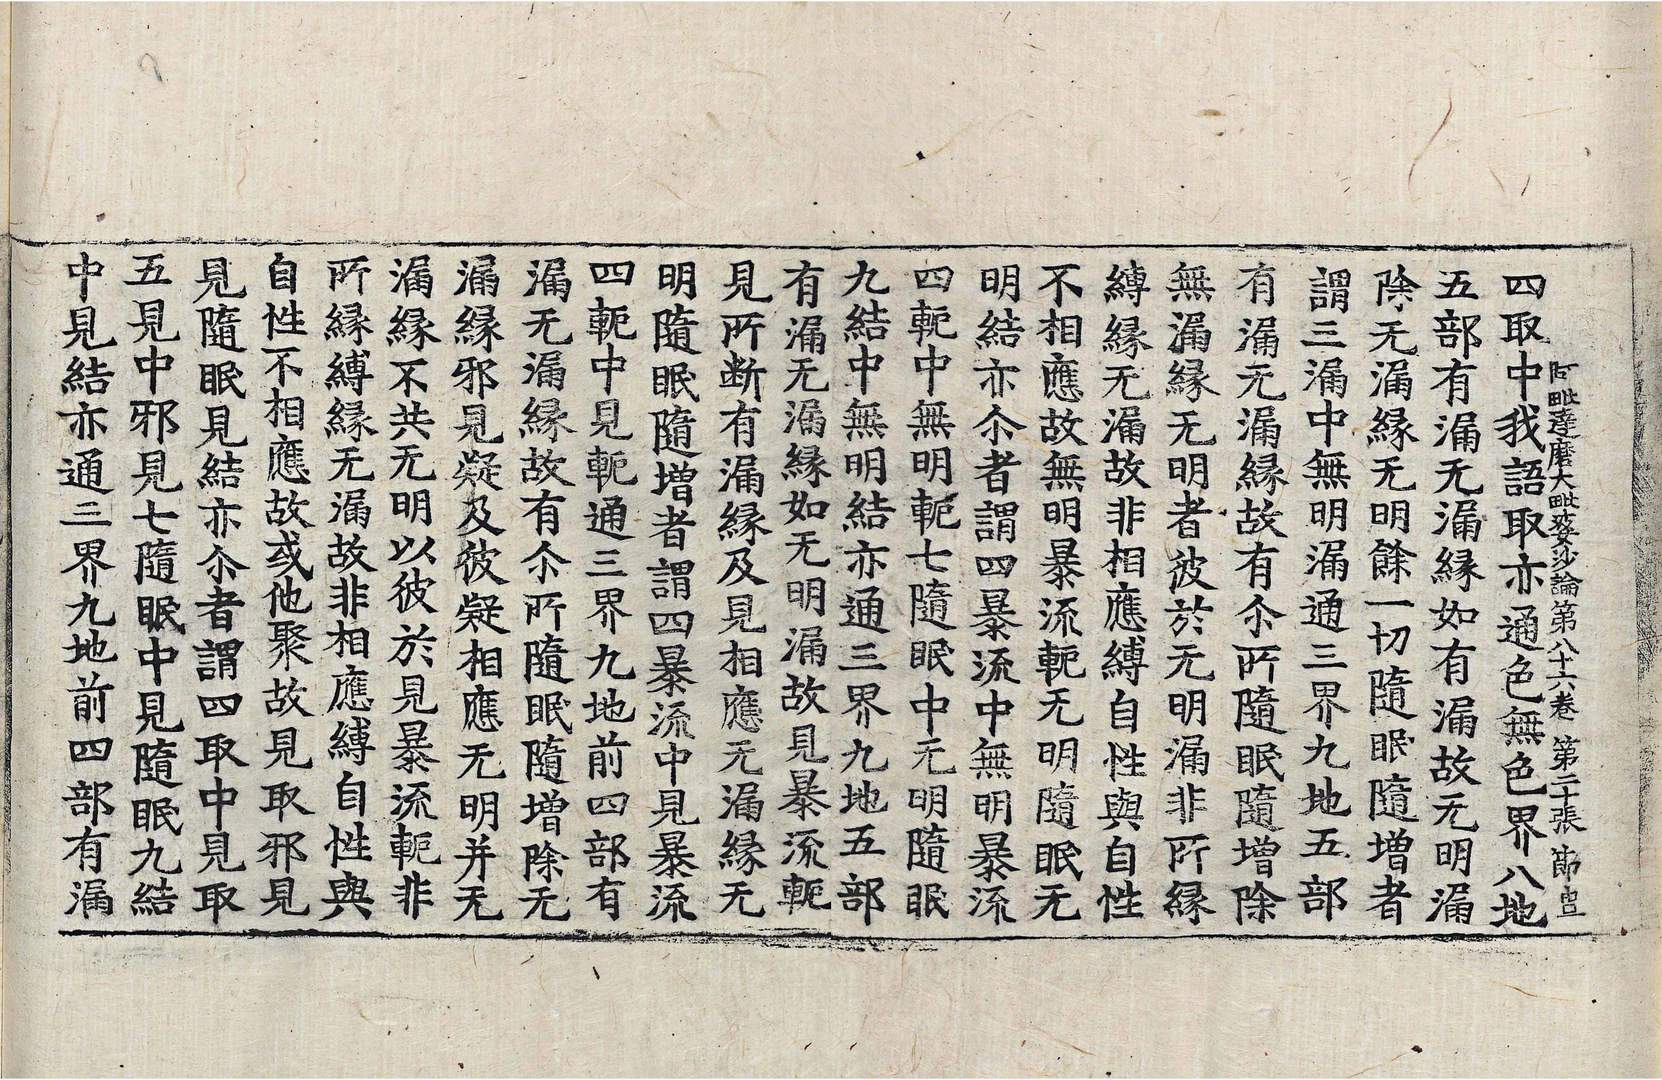 阿毗達磨大毗婆沙論第八十六卷 第二十張 莭
四取中我語取亦通色無色界八地
五部有漏无漏縁如有漏故无明漏
除无漏縁无明餘一切隨眠隨增者
謂三漏中無明漏通三界九地五部
有漏无漏縁故有尒所隨眠隨增除
無漏縁无明者彼於无明漏非所縁
縛縁无漏故非相應縛自性與自性
不相應故無明暴流軛无明隨眠无
明結亦尒者謂四暴流中無明暴流
四軛中無明軛七隨眠中无明隨眠
九結中無明結亦通三界九地五部
有漏无漏縁如无明漏故見暴流軛
見所断有漏縁及見相應无漏縁无
明隨眠隨增者謂四暴流中見暴流
四軛中見軛通三界九地前四部有
漏无漏縁故有尒所隨眠隨增除无
漏縁邪見疑及彼疑相應无明并无
漏縁不共无明以彼於見暴流軛非
所縁縛縁无漏故非相應縛自性與
自性不相應故或他聚故見取邪見
見隨眠見結亦尒者謂四取中見取
五見中邪見七隨眠中見隨眠九結
中見結亦通三界九地前四部有漏